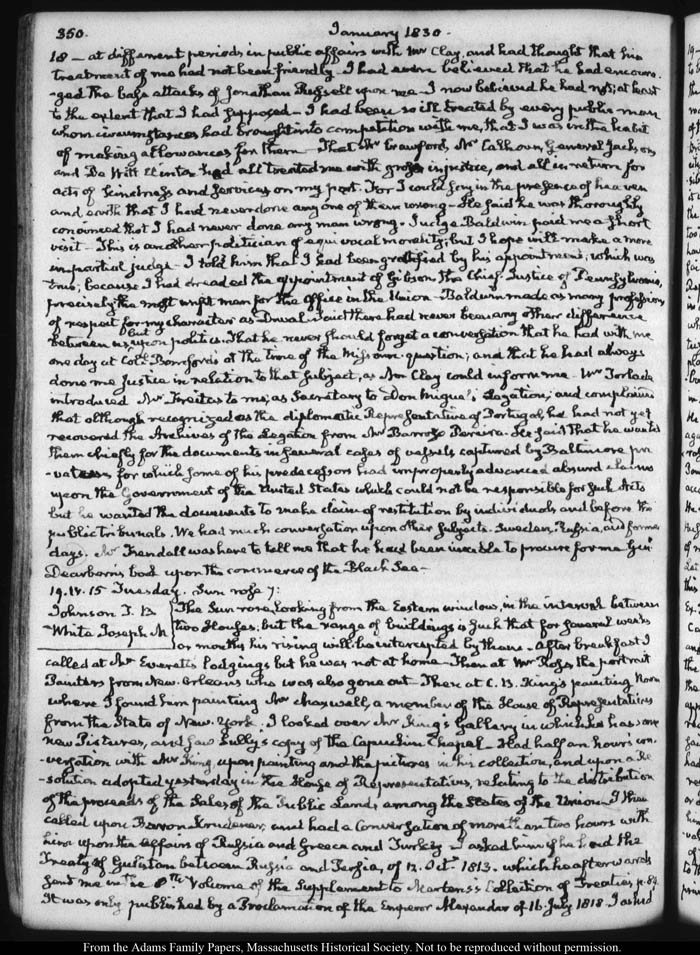 350. January 1830.
18 — at different periods in public affairs with Mr Clay, and had thought that his
treatment of me had not been friendly – I had even believed that he had encoura-
-ged the base attacks of Jonathan Russell upon me – I now believed he had not, at least
to the extent that I had supposed – I had been so ill treated by every public man
whom circumstances had brought into competition with me, that I was in the habit
of making allowances for them – That Mr Crawford, Mr Calhoun, General Jackson
and De Witt Clinton had all treated me with gross injustice, and all in return for
acts of kindness and services on my part. For I could say in the presence of heaven
and earth that I had never done any one of them wrong – He said he was thoroughly
convinced that I had never done any man wrong. Judge Baldwin paid me a short
visit – This is another politician of equivocal morality; but I hope will make a more
impartial judge – I told him that I had been gratified by his appointment, which was
true; because I had dreaded the appointment of Gibson the Chief Justice of Pennsylvania,
precisely the most unfit man for the office in the Union – Baldwin made as many professions
of respect for my character as Duval. Said there had never been any other difference
between us but of upon politics. That he never should forget a conversation that he had with me
one day at Coll. Bomford's at the time of the Missouri question; and that he had always
done me justice in relation to that subject, as Mr Clay could inform me – Mr Torlade
introduced Mr Freitas to me, as Secretary to Don Miguel's Legation; and complains
that although recognized as the diplomatic Representative of Portugal, he had not yet
recovered the Archives of the Legation from Mr Barrozo Pereira. He said that he wanted
them chiefly for the documents in several cases of vessels captured by Baltimore pri
-vateers for which some of his predecessors had improperly advanced absurd claims
upon the Government of the United States which could not be responsible for such Acts
but he wanted the documents to make claim of restitution by individuals and before the
public tribunals. We had much conversation upon other subjects. Sweden, Russia, and former
days. Mr Trendall was here to tell me that he had been unable to procure for me Genl
Dearborn's book upon the commerce of the Black Sea –
19. IV. 15 Tuesday. Sun rose 7:
Johnson J. B
White Joseph M
The Sun rose, looking from the Eastern window, in the interval between
two Houses; but the range of buildings is such that for several weeks
or months his rising will be intercepted by them – After breakfast I
called at Mr Everett's lodgings but he was not at home – Then at Mr the portrait
Painters from New Orleans who was also gone out – Then at C. B. King's painting Room
where I found him painting Mr Maxwell, a member of the House of Representatives
from the State of New-York. I looked over Mr King's Gallery in which he has some
new Pictures, and saw Sully's copy of the Capuchin Chapel – Had half an hour's con-
versation with Mr King, upon painting and the pictures in his collection, and upon a Re
-solution adopted yesterday in the House of Representatives, relating to the distribution
of the proceeds of the Sales of the Public Lands among the States of the Union. I then
called upon Baron Krudener, and had a Conversation of more than two hours with
him upon the affairs of Russia and Greece and Turkey – I asked him if he had the
Treaty of Gulistan between Russia and Persia, of 12. Octr 1813. which he afterwards
sent me in the 8th Volume of the Supplement to Martens's Collection of Treaties p. 89.
It was only published by a Proclamation of the Emperor Alexander of 16. July 1818. I asked
From the Adams Family Papers, Massachusetts Historical Society. Not to be reproduced without permission.